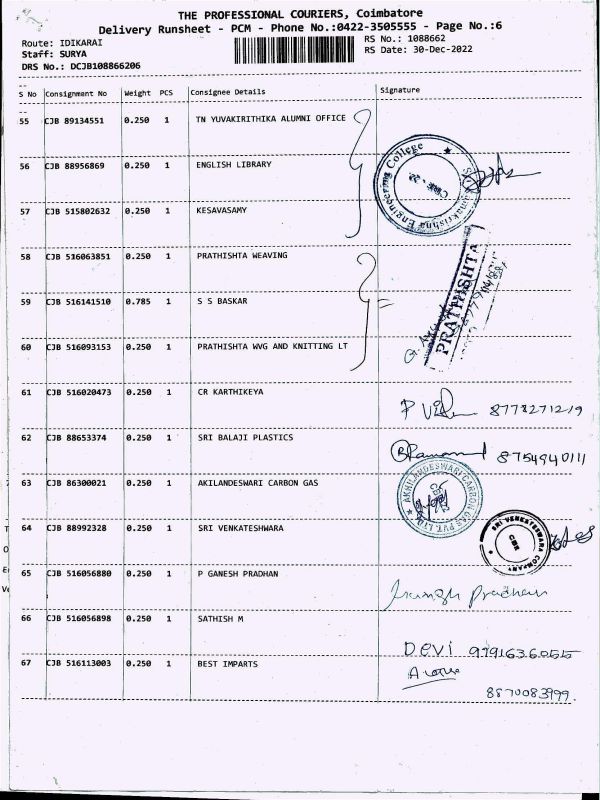 THE PROFESSIONAL COURIERS, Coimbatore
Delivery Runsheet - PCM - Phone No.:0422-3505555 - Page No.:6
Route: IDIKARAI
RS No.: 1088662
Staff: SURYA
RS Date: 30-Dec-2022
DRS No.: DCJB108866206
S No Consignment No Weight PCS Consignee Details Signature
55 CJB 89134551 0.250 1 TN YUVAKIRITHIKA ALUMNI OFFICE
56 CJB 88956869 0.250 1 ENGLISH LIBRARY
Engineering College
57 CJB 515802632 0.250 1 KESAVASAMY
58 CJB 516063851 0.250 1 PRATHISHTA WEAVING
59 CJB 516141510 0.785 1 S S BASKAR
PRATHISHTA
60 CJB 516093153 0.250 1 PRATHISHTA WVG AND KNITTING LT
61 CJB 516020473 0.250 1 CR KARTHIKEYA
8778271219
62 CJB 88653374 0.250 1 SRI BALAJI PLASTICS
8754940111
63 CJB 86300021 0.250 1 AKILANDESWARI CARBON GAS
AKHILANDESWARI CARBON GAS PVT. LTD.
64 CJB 88992328 0.250 1 SRI VENKATESHWARA
SRI VENKATESWARA COMPANY
CBE
65 CJB 516056880 0.250 1 P GANESH PRADHAN
Pradhan
66 CJB 516056898 0.250 1 SATHISH M
Devi
67 CJB 516113003 0.250 1 BEST IMPARTS
8870083999